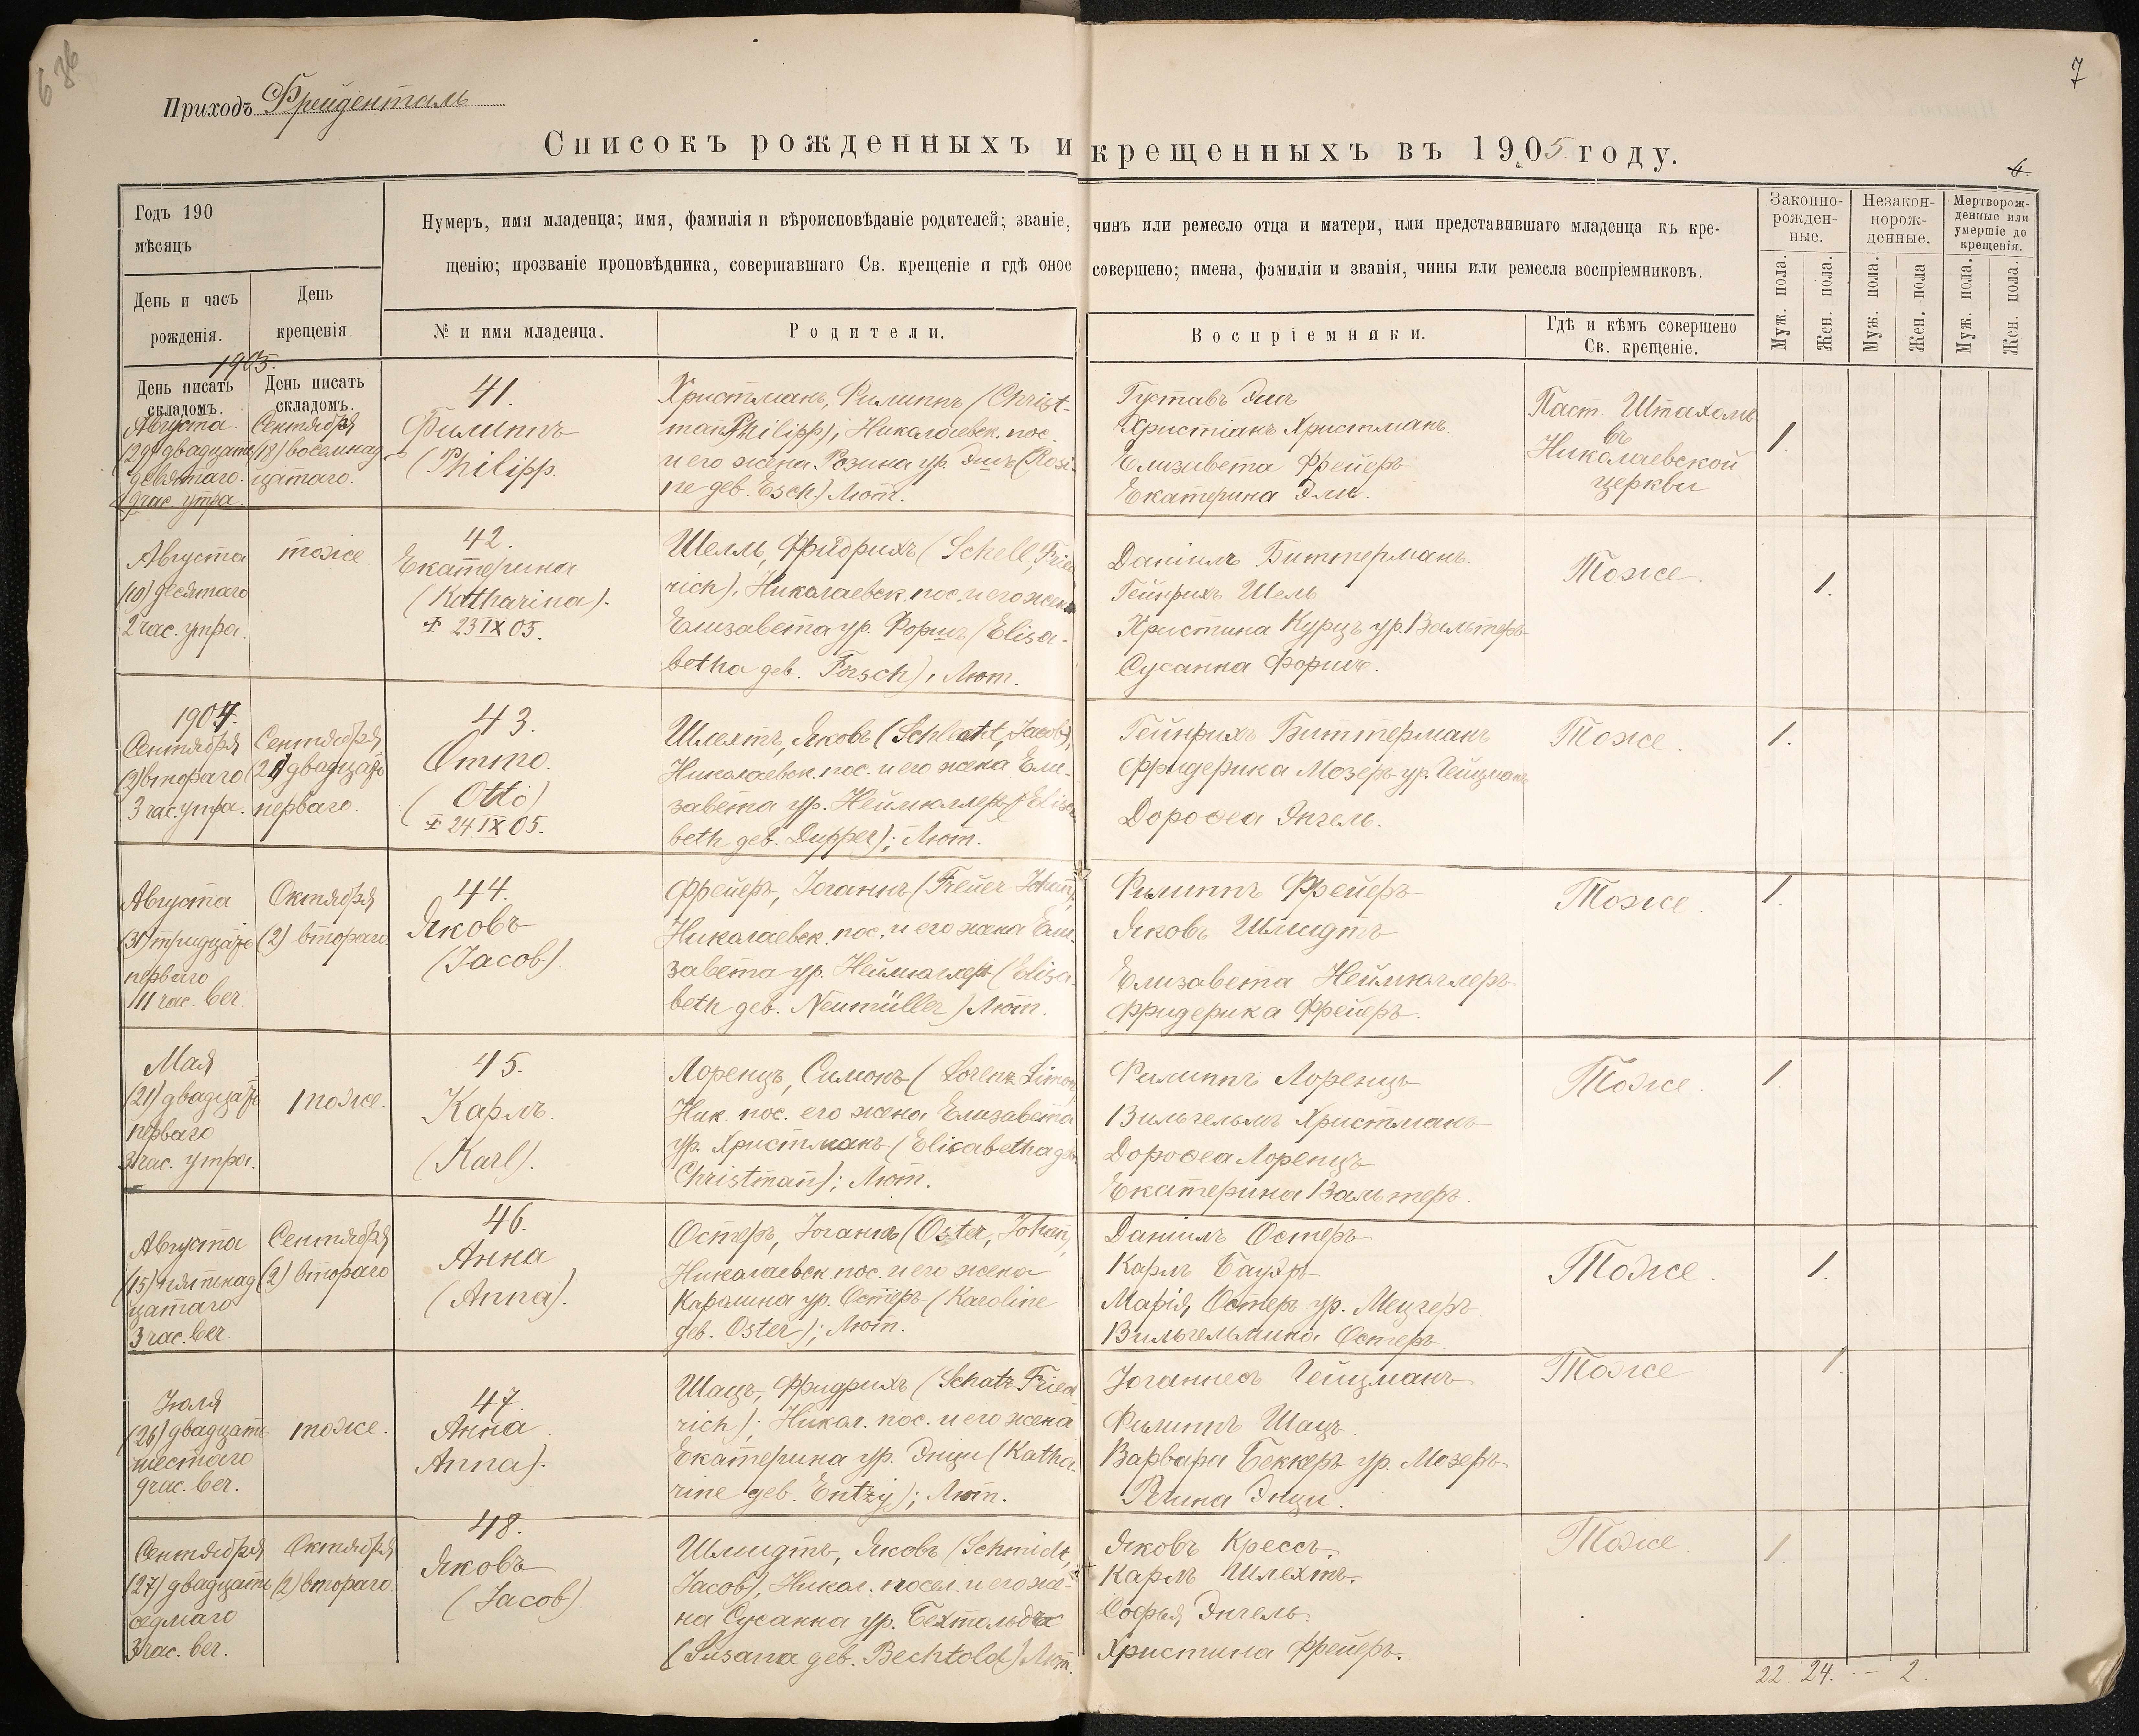 636
7
Приходъ Фрейденталь
Списокъ рожденныхъ и крещенныхъ въ 1905 году.
6.
Годъ 190
мѣсяцъ
Нумеръ, имя младенца; имя, фамилія и вѣроисповѣданіе родителей; званіе, чинъ или ремесло отца и матери, или представившаго младенца къ кре-
щенію; прозваніе проповѣдника, совершавшаго Св. крещеніе и гдѣ оное совершено; имена, фамиліи и званія, чины или ремесла воспріемниковъ.
Законно-
рожден-
ные.
Незакон-
норож-
денные.
Мертворож-
денные или
умершіе до
крещенія.
День и часъ
рожденія.
День
крещенія
№ и имя младенца.
Родители.
Воспріемники.
Гдѣ и кѣмъ совершено
Св. крещеніе.
Муж. пола.
Жен. пола.
Муж. пола.
Жен. пола
Муж. пола.
Жен. пола.
1905.
День писать
складомъ.
День писать
складомъ.
Августа
(29) двадцать
девятаго
9 час. утра
Сентября
(18) восемнад-
цатаго.
41.
Филиппъ
(Philipp.
Христманъ, Филиппъ (Christ-
man Philipp), Николаевск. пос.
и его жена Розина ур. Эшъ (Rosi-
ne geb. Esch) Лют.
Густавъ Эшъ
Христіанъ Христманъ
Елизавета Фрейеръ
Екатерина Эшъ.
Паст. Штахомъ
въ
Николаевской
церкви
1.
Августа
(10) десятаго
2 час. утра.
тоже
42.
Екатерина
(Katharina).
† 23 IX 05.
Шелль, Фридрихъ (Schell, Fried
rich), Николаевск. пос. и его жена
Елизавета ур. Форшъ (Elisa-
betha geb. Forsch), Лют.
Даніилъ Биттерманъ.
Гейнрихъ Шель
Христина Курцъ ур. Вальтеръ
Сусанна Форшъ.
Тоже.
1.
1904.
Сентября
(2) второго
3 час. утра.
Сентября
(21) двадцать
перваго.
43.
Отто.
(Otto)
† 24 IX 05.
Шлехтъ, Яковъ (Schlecht, Jacob),
Николаевск. пос. и его жена Ели-
завета ур. Неймиллеръ (Elisa
beth geb. Dupper); Лют.
Гейнрихъ Биттерманъ
Фридерика Мозеръ ур. Гейцманъ
Доровеа Энгель.
Тоже.
1.
Августа
(31) тридцать
перваго
11 час. веч.
Октября
(2) второго.
44.
Яковъ
(Jacob).
Фрейеръ, Іоганнъ (Freüer Johan),
Николаевск. пос. и его жена Ели-
завета ур. Неймиллеръ (Elisa-
beth geb. Neumüller) Лют.
Филиппъ Фрейеръ
Яковъ Шмидтъ
Елизавета Неймиллеръ
Фридерика Фрейеръ.
Тоже.
1.
Мая
(21) двадцать
перваго
3 час. утра.
тоже.
45.
Карлъ.
(Karl).
Лоренцъ, Симонъ (Lorenz Simon,
Ник. пос. его жена Елизавета
ур. Христманъ (Elisabetha geb.
Christman); Лют.
Филиппъ Лоренцъ
Вильгельмъ Христманъ
Доровеа Лоренцъ
Екатерина Вальтеръ.
Тоже.
1.
Августа
(15) пятнад-
цатаго
3 час. веч.
Сентября
(2) второго
46.
Анна
(Anna).
Остеръ, Іоганнъ (Oster, Johan),
Николаевск. пос. и его жена
Каролина ур. Остеръ (Karoline
geb. Oster); Лют.
Даніилъ Остеръ
Карлъ Бауэръ
Марія Остеръ ур. Мецгеръ.
Вильгельмина Остеръ
Тоже.
1.
Іюля
(26) двадцать
шестаго
9 час. веч.
тоже.
47.
Анна
Anna).
Шацъ, Фридрихъ (Schatz Fried
rich); Никол. пос. и его жена
Екатерина ур. Энци (Katha-
rine geb. Entzy); Лют.
Іоганнесъ Гейцманъ
Филиппъ Шацъ.
Варвара Беккеръ ур. Мозеръ
Регина Энци.
Тоже
1.
Сентября
(27) двадцать
седмаго
3 час. веч.
Октября
(2) второго.
48.
Яковъ
(Jacob).
Шмидтъ, Яковъ (Schmidt,
Jacob), Никол. посел. и его же-
на Сусанна ур. Бехтольдъ
(Susana geb. Bechtold) Лют.
Яковъ Крессъ.
Карлъ Шлехтъ.
Софья Энгель.
Христина Фрейеръ.
Тоже.
1.
22. 24. — 2.